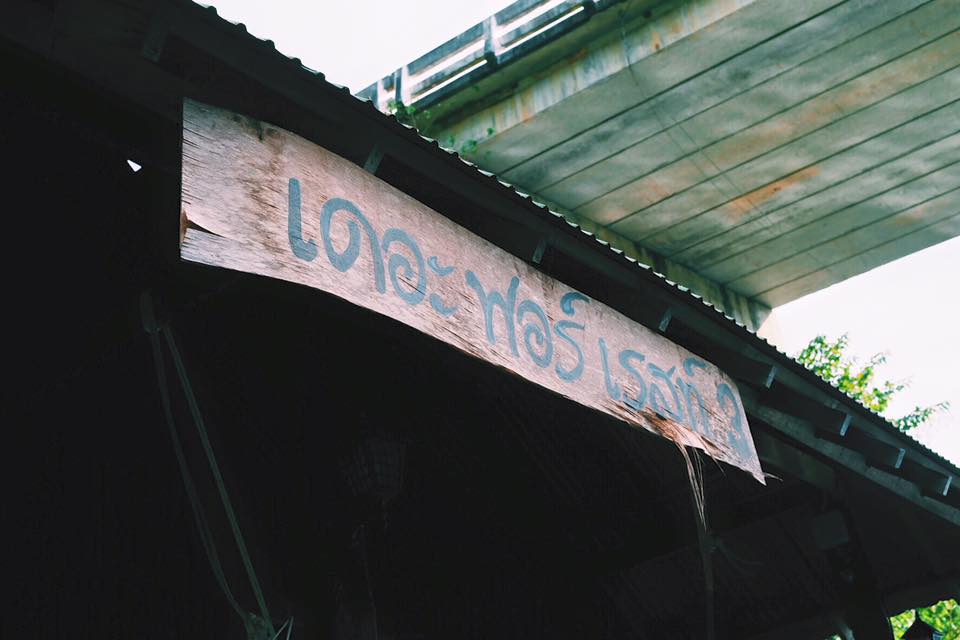 เดอะ ฟอร์ เรสท์ 3